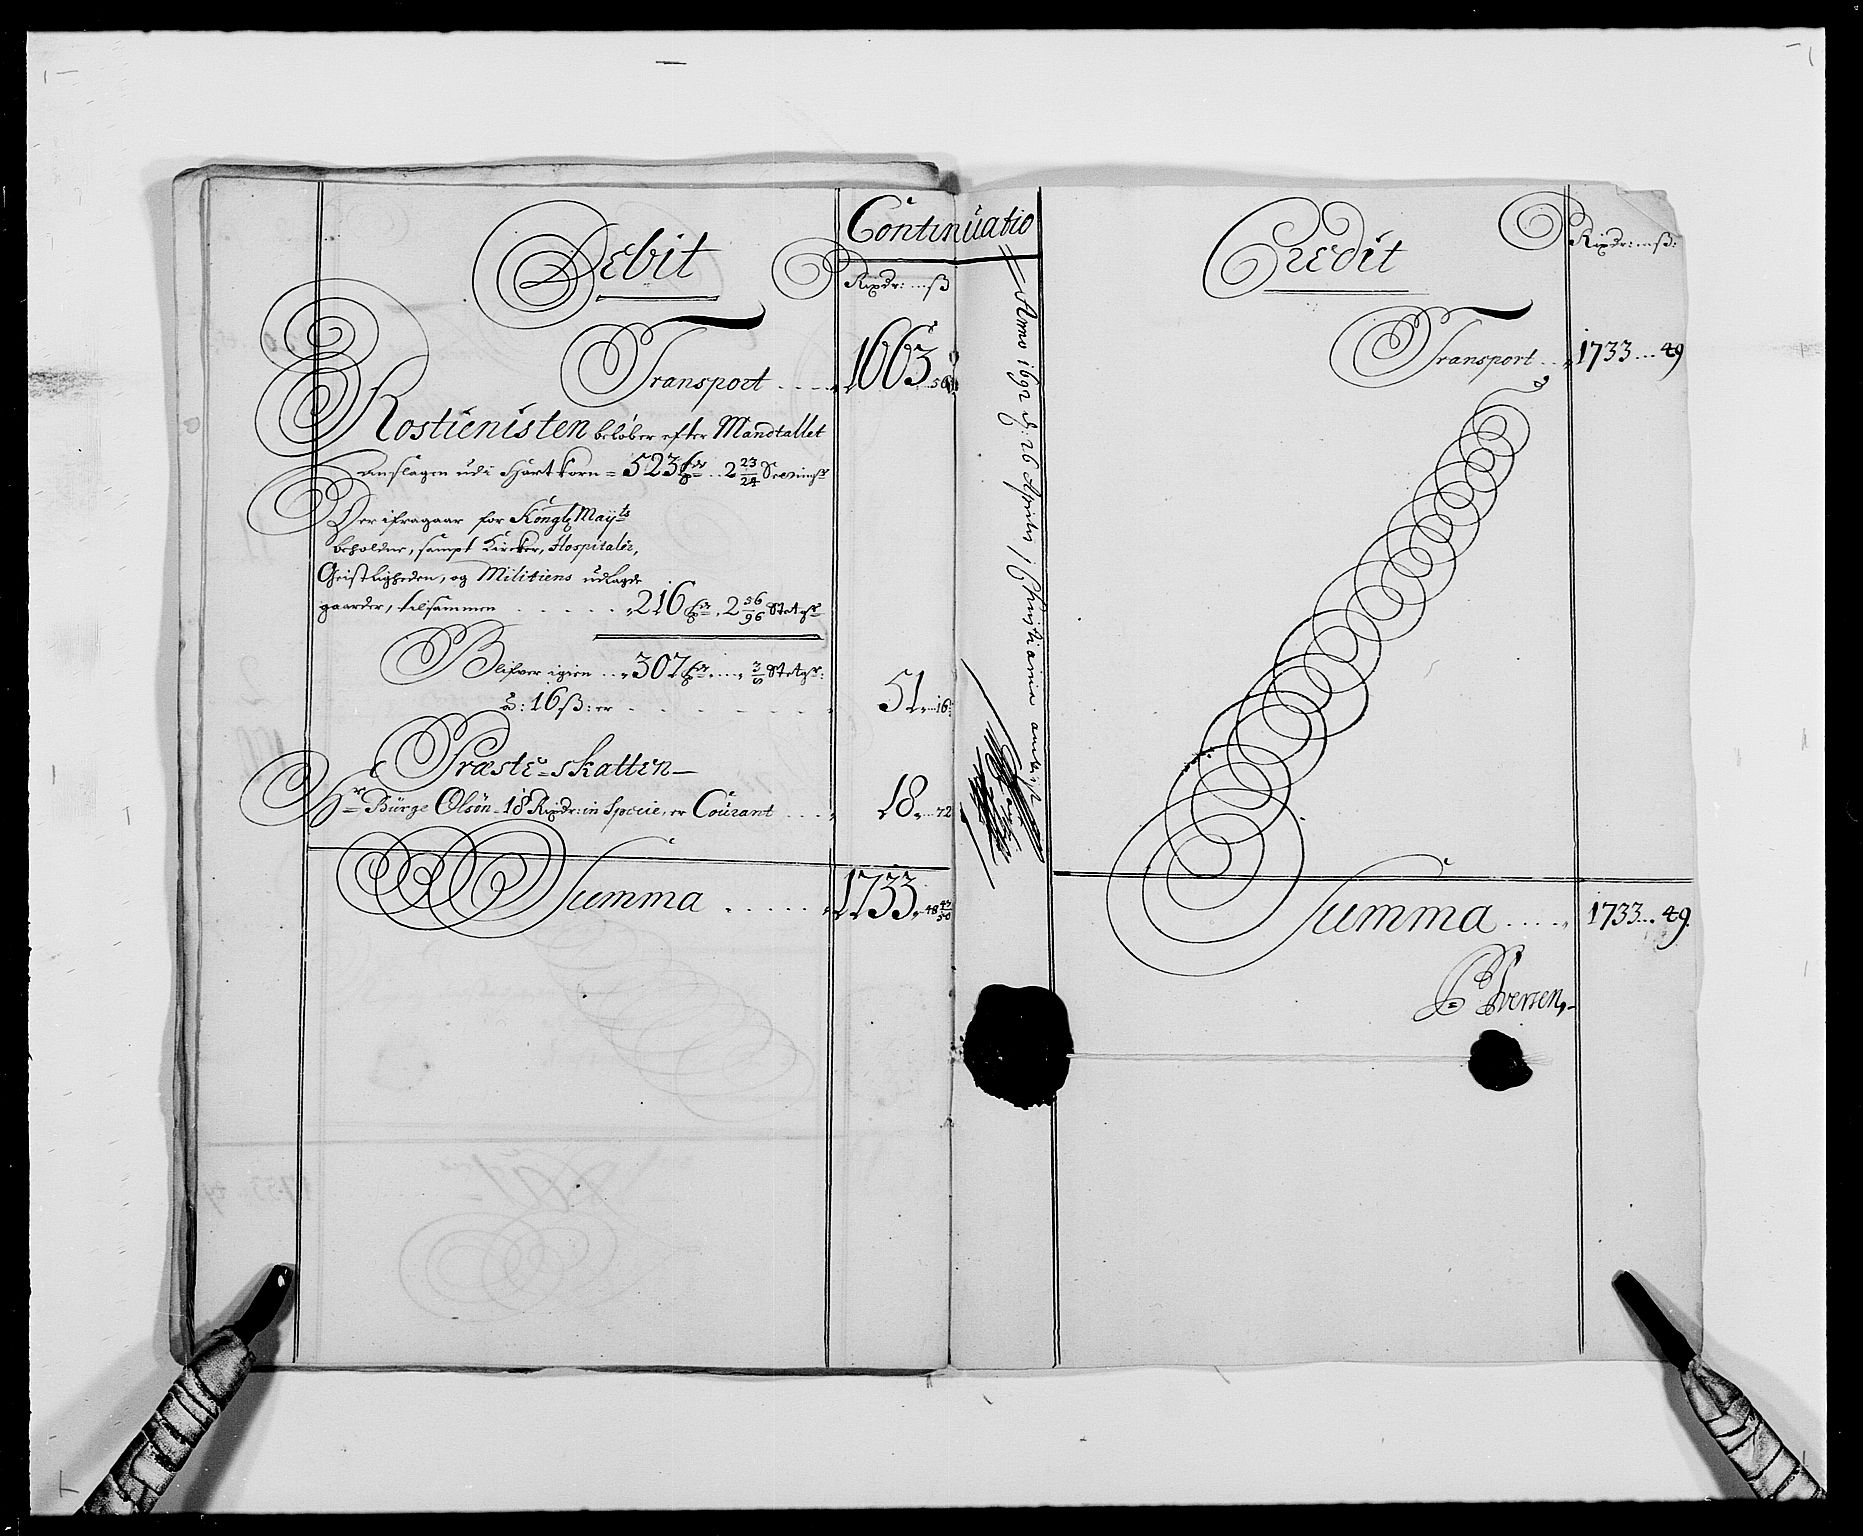 Debit
Continuatio
Rixdr: ... ß
Transport .... 1663
Rostienisten beløber efter Mandtallet
anslagen udi Hartkorn = 523 .. 2 23/24
Der ifragaar for Kongl Mayts
beholdne, sampt Kircker, Hospitaler,
Geistligheden, og Militiens udlagde
gaarder, tilsammen ...... 216 , 2 56/96
Blifver igien ... 307
à: 16 ß: er ...... 51 ... 16
Præste=skatten
Hr Bürge Olsøn 18 Rixdr: in Specie, er Courant .... 18 ... 72
Summa ...... 1733 .. 48 47/50
Anno 1692 d: 26 Aprilis Christiania
Credit
Rixdr: ... ß:
Transport ... 1733 ... 49
Summa ..... 1733 ... 49.
Iversen